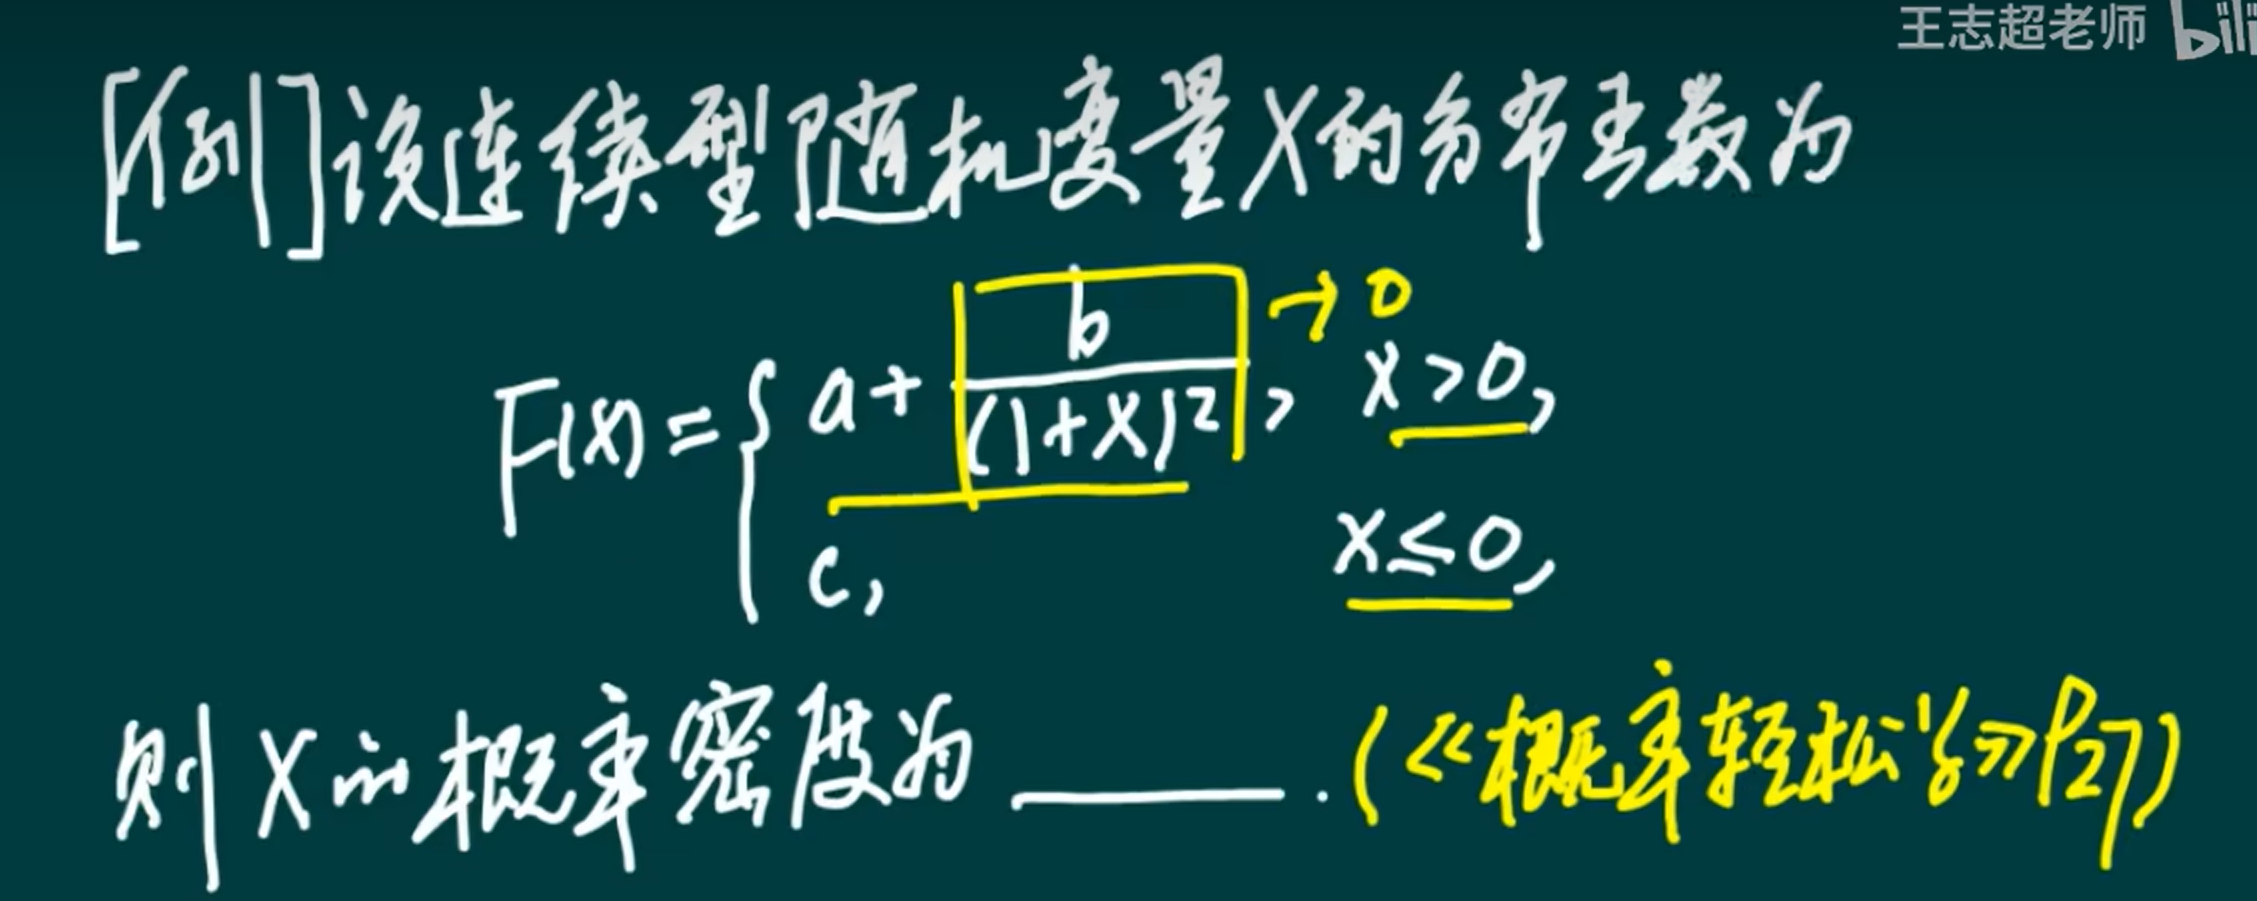 王志超老师 bili
[例]设连续型随机变量X的分布函数为
F(x)={ a+ b/(1+x)², x>0,
→0
c, x≤0,
则X的概率密度为 ______ . (《概率轻松学》P27)